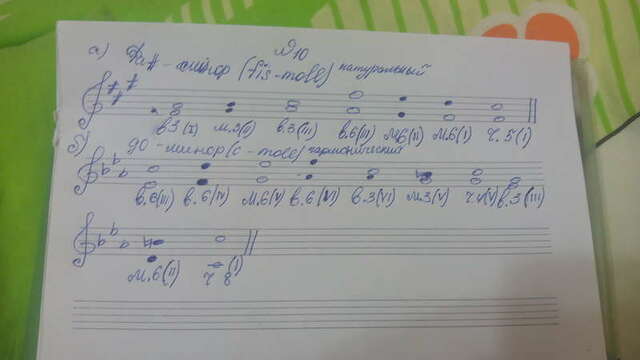 №10
а) Фа# - минор (fis-moll) натуральный
в3(I) м.3(II) в.3(III) в.6(III) м6(II) м.6(I) ч.5(I)
б) до - минор (c-moll) гармонический
в.6(III) в.6(IV) м.6(V) в.6(VI) в.3(VI) м.3(V) в.3(III)
м.6(II) ч 8(I)